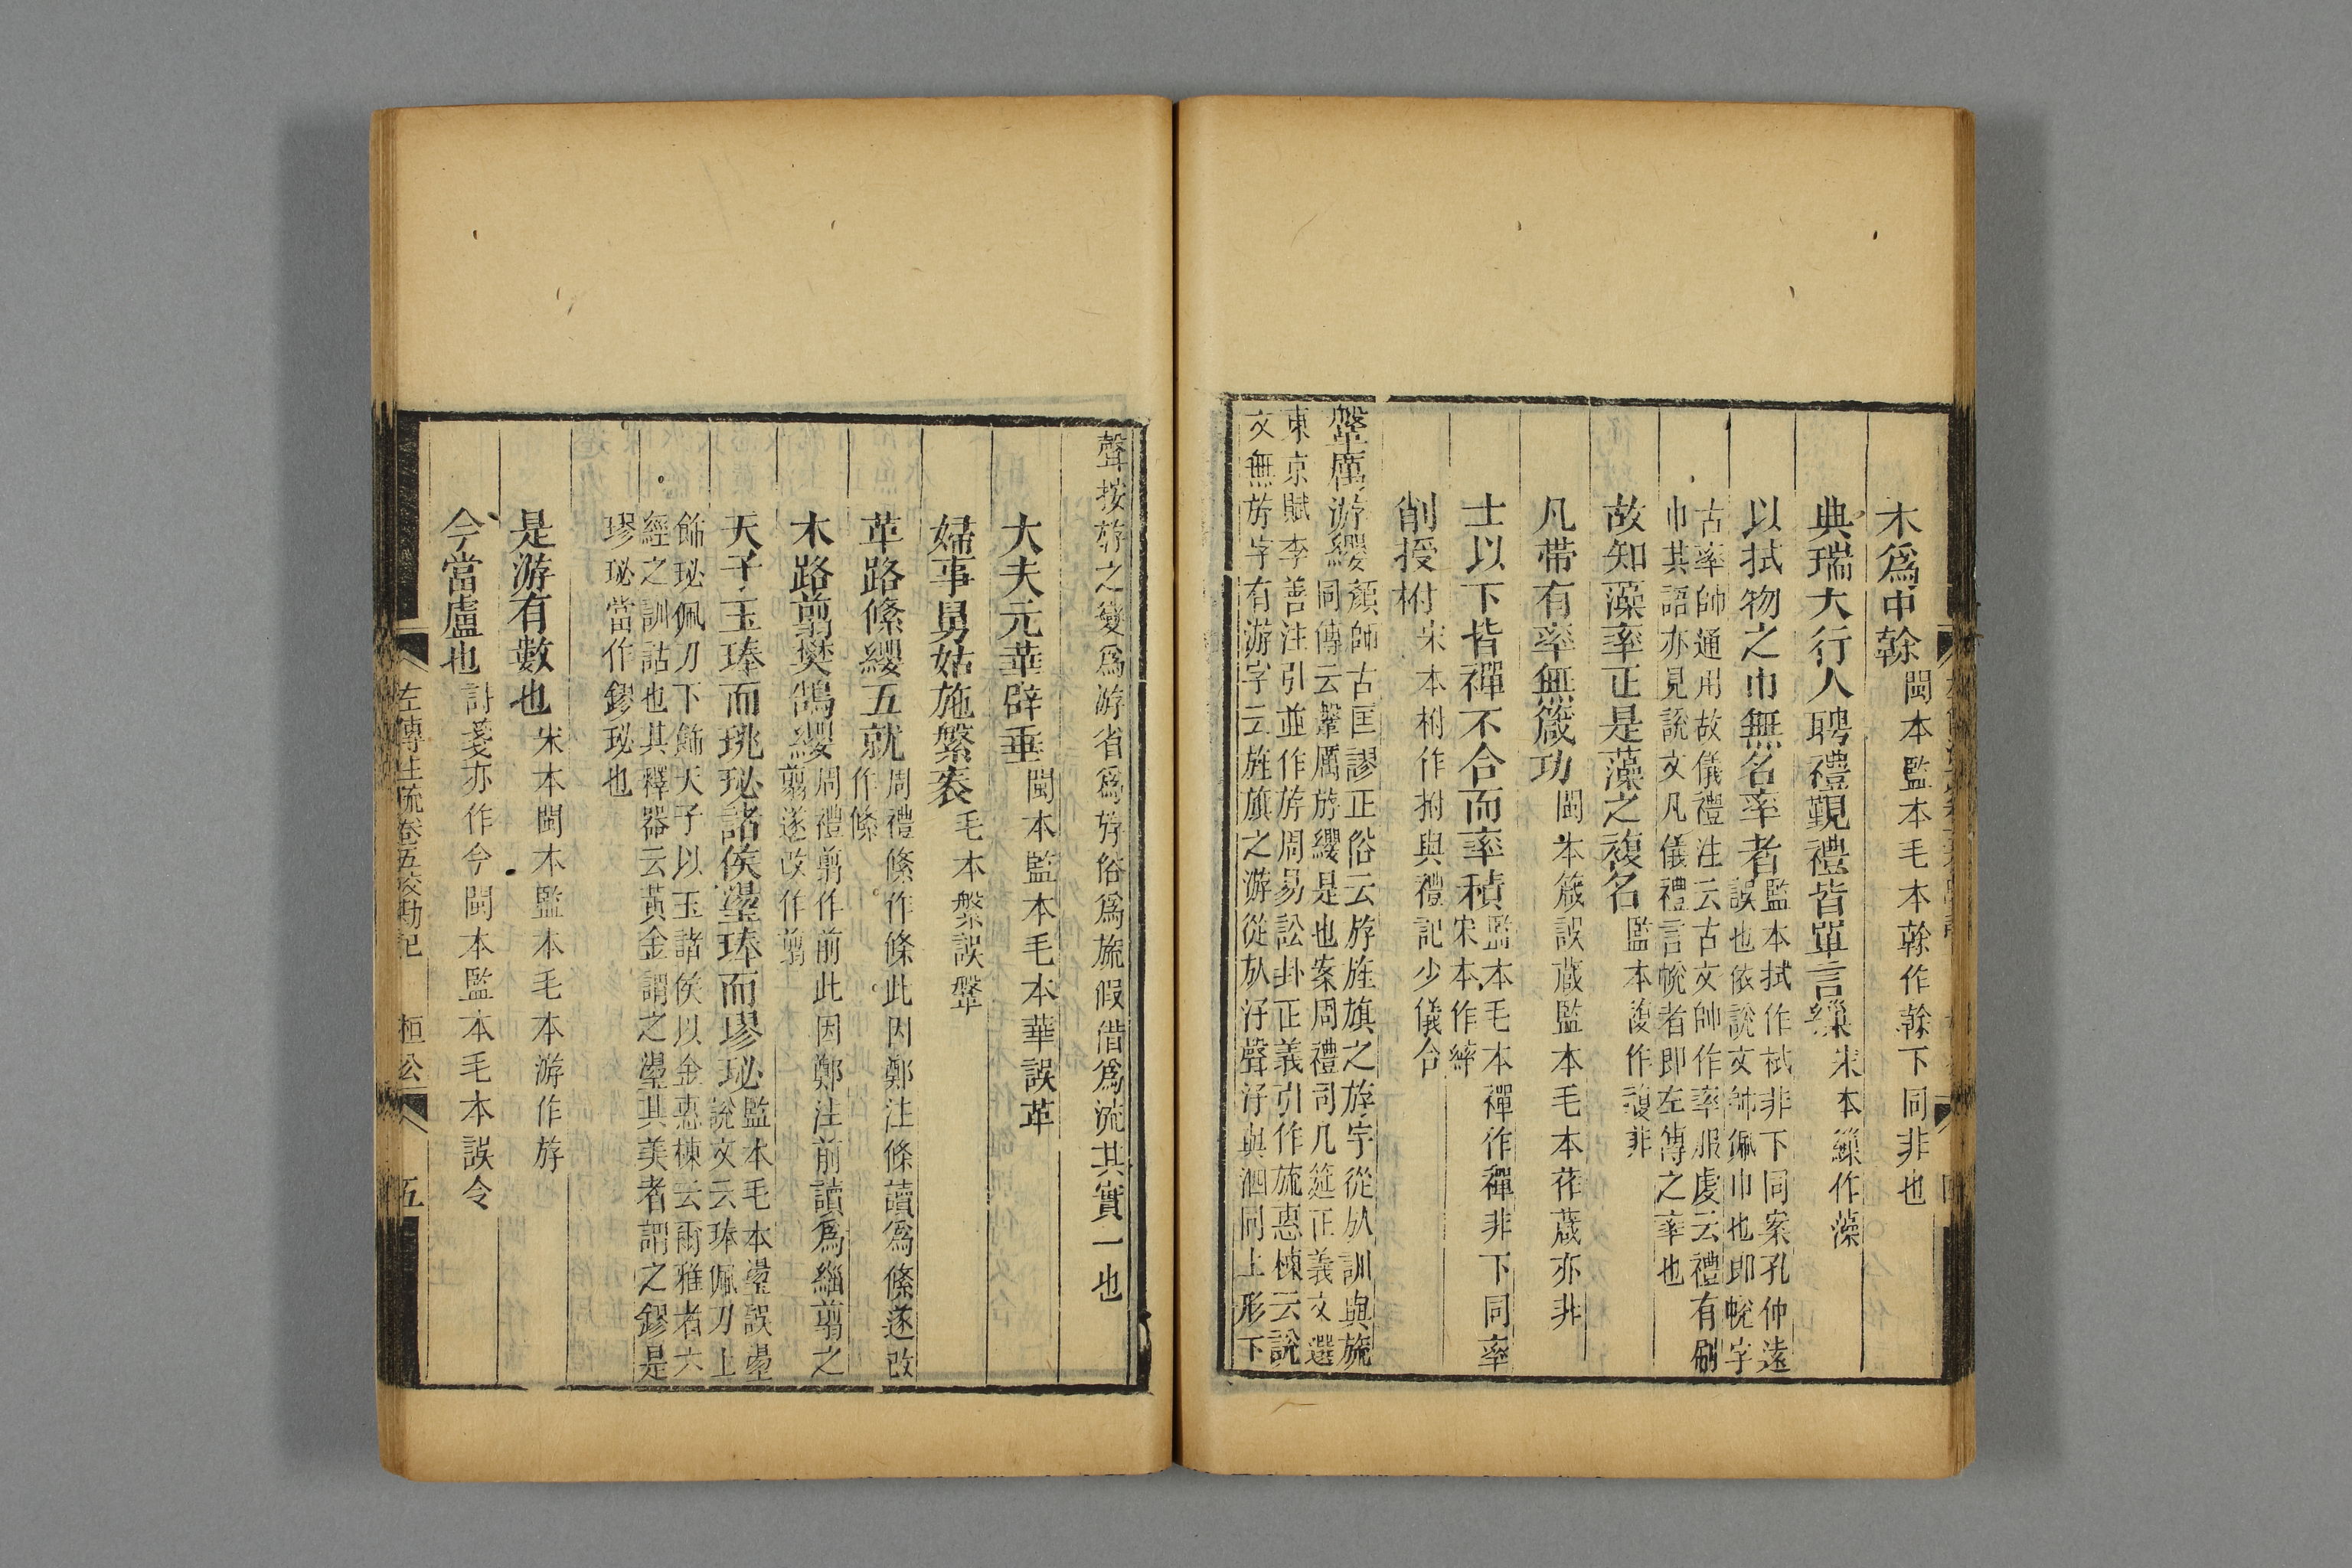 木爲中榦閩本監本毛本榦作幹下同非也
典瑞大行人聘禮覲禮皆單言繅宋本繅作藻
以拭物之巾無名率者監本拭作栻非下同案孔仲遠
誤也依說文帥佩巾也卽帨字
古率帥通用故儀禮注云古文帥作率服虔云禮有刷
巾其語亦見說文凡儀禮言帨者卽左傳之率也
故知藻率正是藻之複名監本複作復非
凡帶有率無箴功閩本箴誤葴監本毛本作葴亦非
士以下皆襌不合而率積監本毛本襌作禪非下同率
宋本作繂
削授柎宋本柎作拊與禮記少儀合
鞶厲游纓顏師古匡謬正俗云斿旌旗之斿字從㫃訓與旒
同傳云鞶厲斿纓是也案周禮司几筵正義文選
東京賦李善注引並作斿周易訟卦正義引作旒惠棟云說
文無斿字有游字云旌旗之游從㫃汓聲汓與泅同上形下
聲按斿之變爲游省爲斿俗爲旒假借爲流其實一也
大夫元華辟垂閩本監本毛本華誤革
婦事舅姑施縏袠毛本縏誤鞶
革路絛纓五就周禮絛作條此因鄭注條讀爲絛遂改
作絛
木路翦樊鵠纓周禮翦作前此因鄭注前讀爲緇翦之
翦遂改作翦
天子玉琫而珧珌諸侯璗琫而璆珌監本毛本璗誤㼆
說文云琫佩刀上
飾珌佩刀下飾天子以玉諸侯以金惠棟云爾雅者六
經之訓詁也其釋器云黃金謂之璗其美者謂之鏐是
璆珌當作鏐珌也
是游有數也宋本閩本監本毛本游作斿
今當盧也詩箋亦作今閩本監本毛本誤令
左傳注疏卷五校勘記 桓公 五